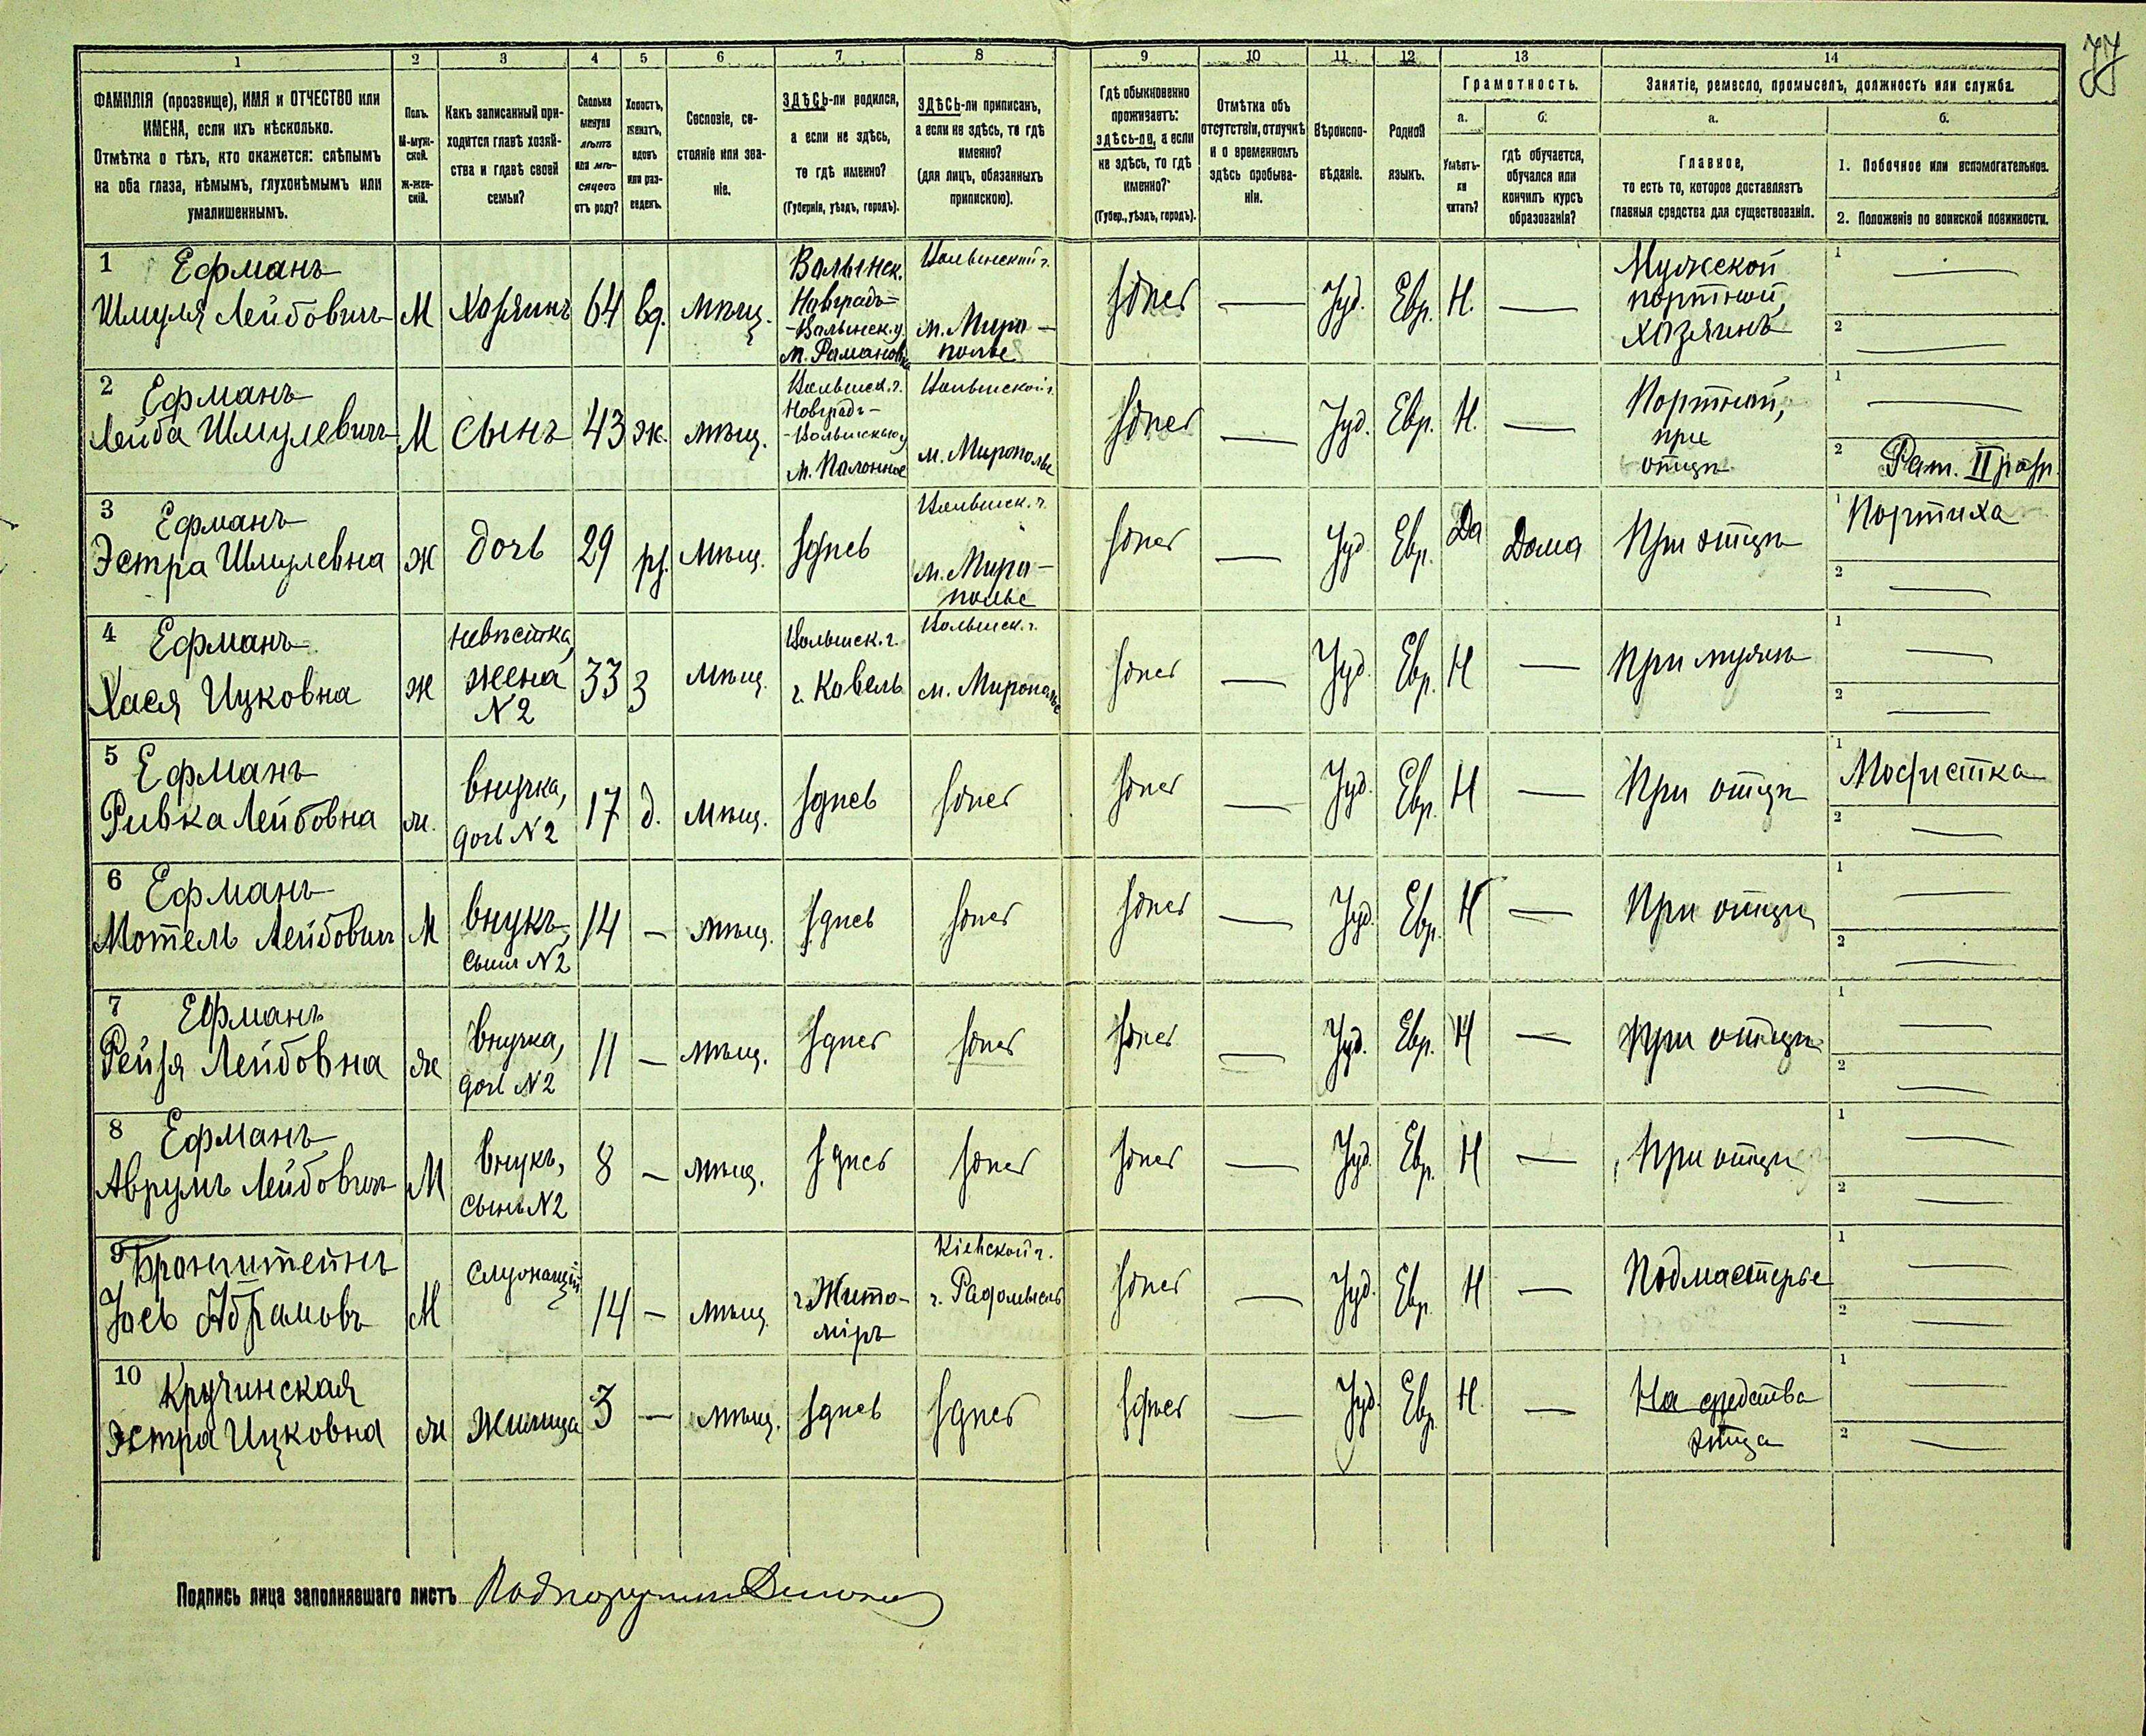 77
1
2
3
4
5
6
7
8
9
10
11
12
13
14
ФАМИЛІЯ (прозвище), ИМЯ и ОТЧЕСТВО или
ИМЕНА, если ихъ нѣсколько.
Отмѣтка о тѣхъ, кто окажется: слѣпымъ
на оба глаза, нѣмымъ, глухонѣмымъ или
умалишеннымъ.
Полъ.
М-муж-
ской.
Ж-жен-
скій.
Какъ записанный при-
ходится главѣ хозяй-
ства и главѣ своей
семьи?
Сколько
минуло
лѣтъ
или мѣ-
сяцевъ
отъ роду?
Холостъ,
женатъ,
вдовъ
или раз-
веденъ.
Сословіе, со-
стояніе или зва-
ніе.
ЗДѢСЬ-ли родился,
а если не здѣсь,
то гдѣ именно?
(Губернія, уѣздъ, городъ).
ЗДѢСЬ-ли приписанъ,
а если не здѣсь, то гдѣ
именно?
(для лицъ, обязанныхъ
припискою).
Гдѣ обыкновенно
проживаетъ:
здѣсь-ли, а если
не здѣсь, то гдѣ
именно?
(Губер., уѣздъ, городъ).
Отмѣтка объ
отсутствіи, отлучкѣ
и о временномъ
здѣсь пребыва-
ніи.
Вѣроиспо-
вѣданіе.
Родной
языкъ.
Грамотность.
а.
Умѣетъ-
ли
читать?
б.
гдѣ обучается,
обучался или
кончилъ курсъ
образованія?
Занятіе, ремесло, промыселъ, должность или служба.
а.
Главное,
то есть то, которое доставляетъ
главныя средства для существованія.
б.
1. Побочное или вспомогательное.
2. Положеніе по воинской повинности.
1 Ефманъ
Шмуля Лейбовичъ М Хозяинъ 64 вд. мѣщ.
Волынск.
Новградъ-
-Волынск. у
м. Романовк
Волынской г.
м. Миро-
полье
здѣсь — Іуд. Евр. Н. —
Мужской
портной,
хозяинъ
1 —
2 —
2 Ефманъ
Лейба Шмулевичъ М сынъ 43 ж. мѣщ.
Волынск. г.
Новградъ-
-Волынскаго у
м. Полонное
Волынской г.
м. Мирополье
здѣсь — Іуд. Евр. Н. —
Портной,
при
отцѣ
1 —
2 Рат. II разр.
3 Ефманъ
Эстра Шмулевна ж дочь 29 рз. мѣщ. здѣсь
Волынск. г.
м. Миро-
полье
здѣсь — Іуд. Евр. Да Дома При отцѣ
1 Портниха
2 —
4 Ефманъ
Хася Ицковна ж
невѣстка,
жена
N 2
33 З мѣщ.
Волынск. г.
г. Ковель
Волынск. г.
м. Мирополье
здѣсь — Іуд. Евр. Н — При мужѣ
1 —
2 —
5 Ефманъ
Ривка Лейбовна ж.
внучка,
дочь N 2
17 д. мѣщ. здѣсь здѣсь здѣсь — Іуд. Евр. Н — При отцѣ
1 Модистка
2 —
6 Ефманъ
Мотель Лейбовичъ М
внукъ,
сынъ N 2
14 — мѣщ. здѣсь здѣсь здѣсь — Іуд. Евр. Н — При отцѣ
1 —
2 —
7 Ефманъ
Рейзя Лейбовна ж
внучка,
дочь N 2
11 — мѣщ. здѣсь здѣсь здѣсь — Іуд. Евр. Н — При отцѣ
1 —
2 —
8 Ефманъ
Аврумъ Лейбовичъ М
внукъ,
сынъ N 2
8 — мѣщ. здѣсь здѣсь здѣсь — Іуд. Евр. Н — При отцѣ
1 —
2 —
9 Бронштейнъ
Іось Абрамовъ М Служащій 14 — мѣщ.
г. Жито-
міръ
Кіевской г.
г. Радомысль
здѣсь — Іуд. Евр. Н — Подмастерье
1 —
2 —
10 Кручинская
Эстра Ицковна ж Жилица 3 — мѣщ. здѣсь здѣсь здѣсь — Іуд. Евр. Н. —
На средства
отца
1 —
2 —
Подпись лица заполнявшаго листъ Подпоручикъ